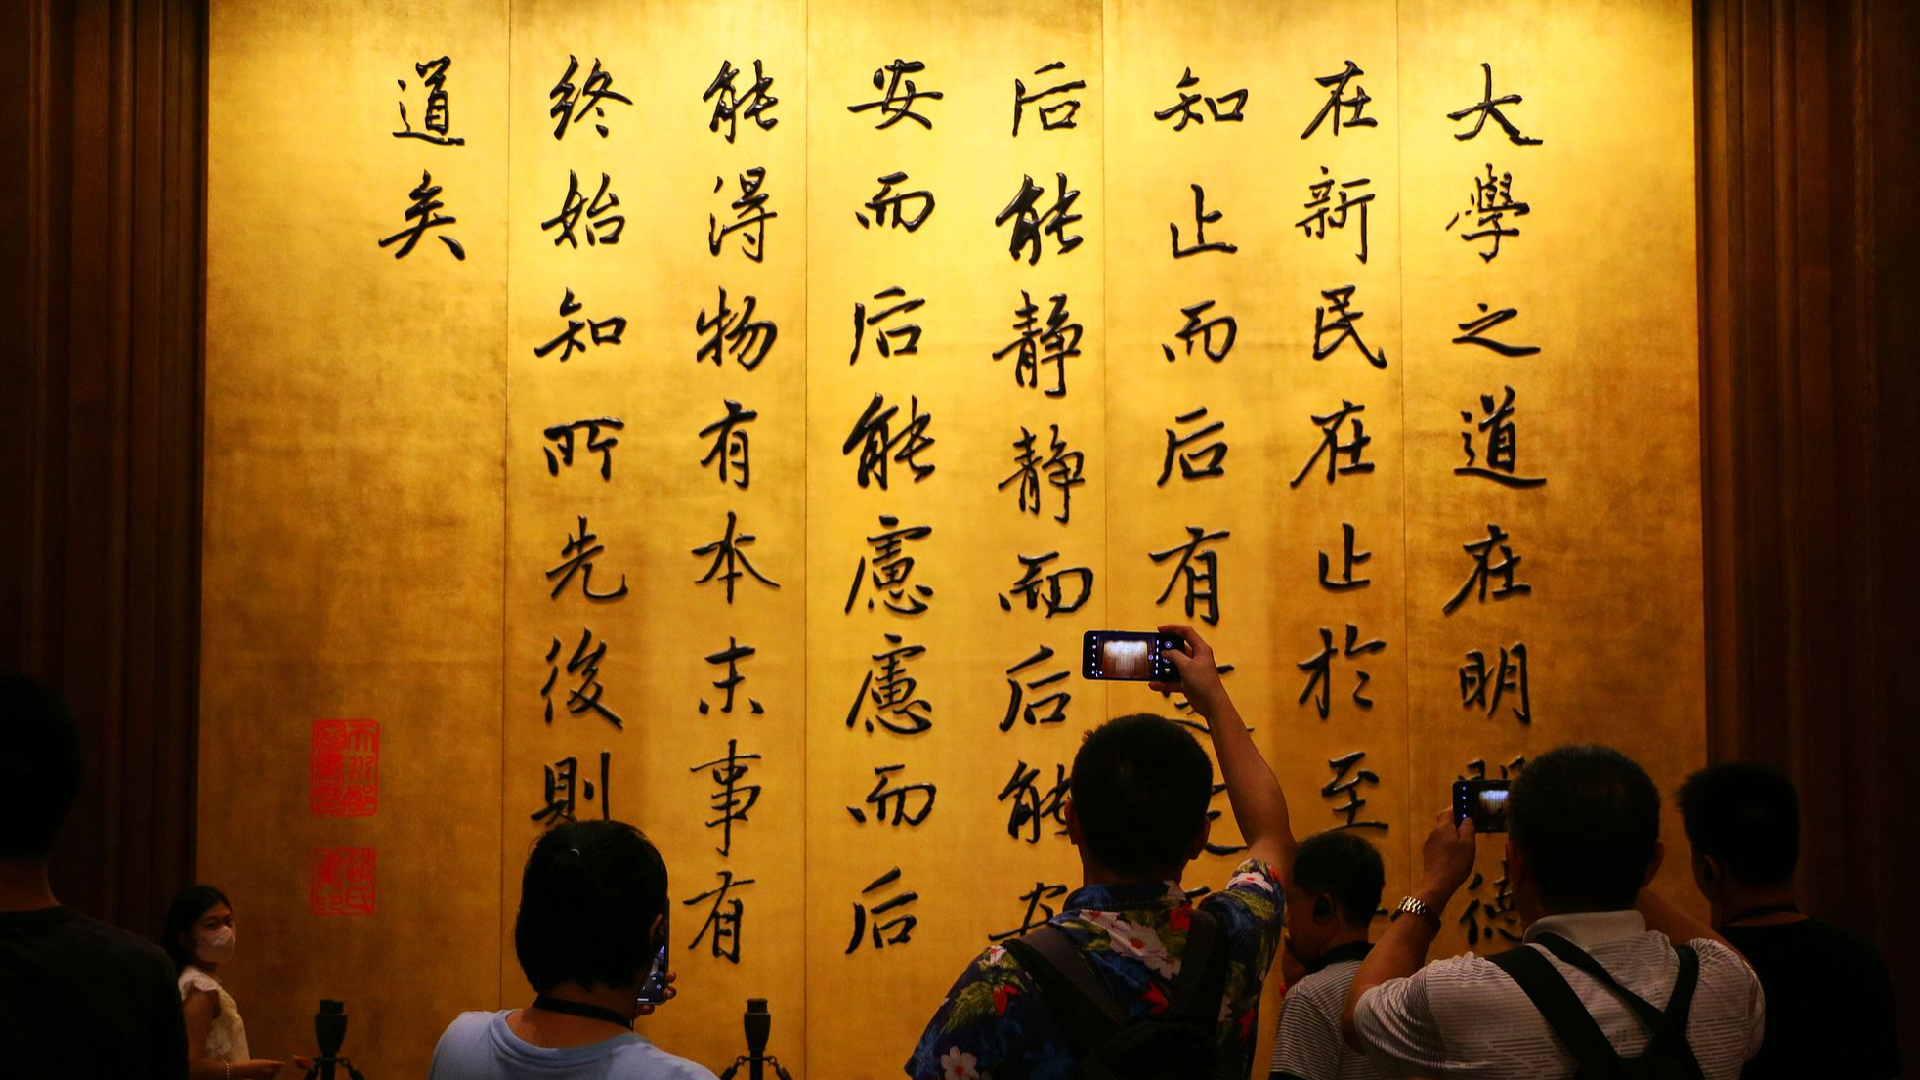 大學之道在明明德
在新民在止於至
知止而后有
后能静静而后能安
安而后能慮慮而后
能得物有本末事有
終始知所先後則
道矣